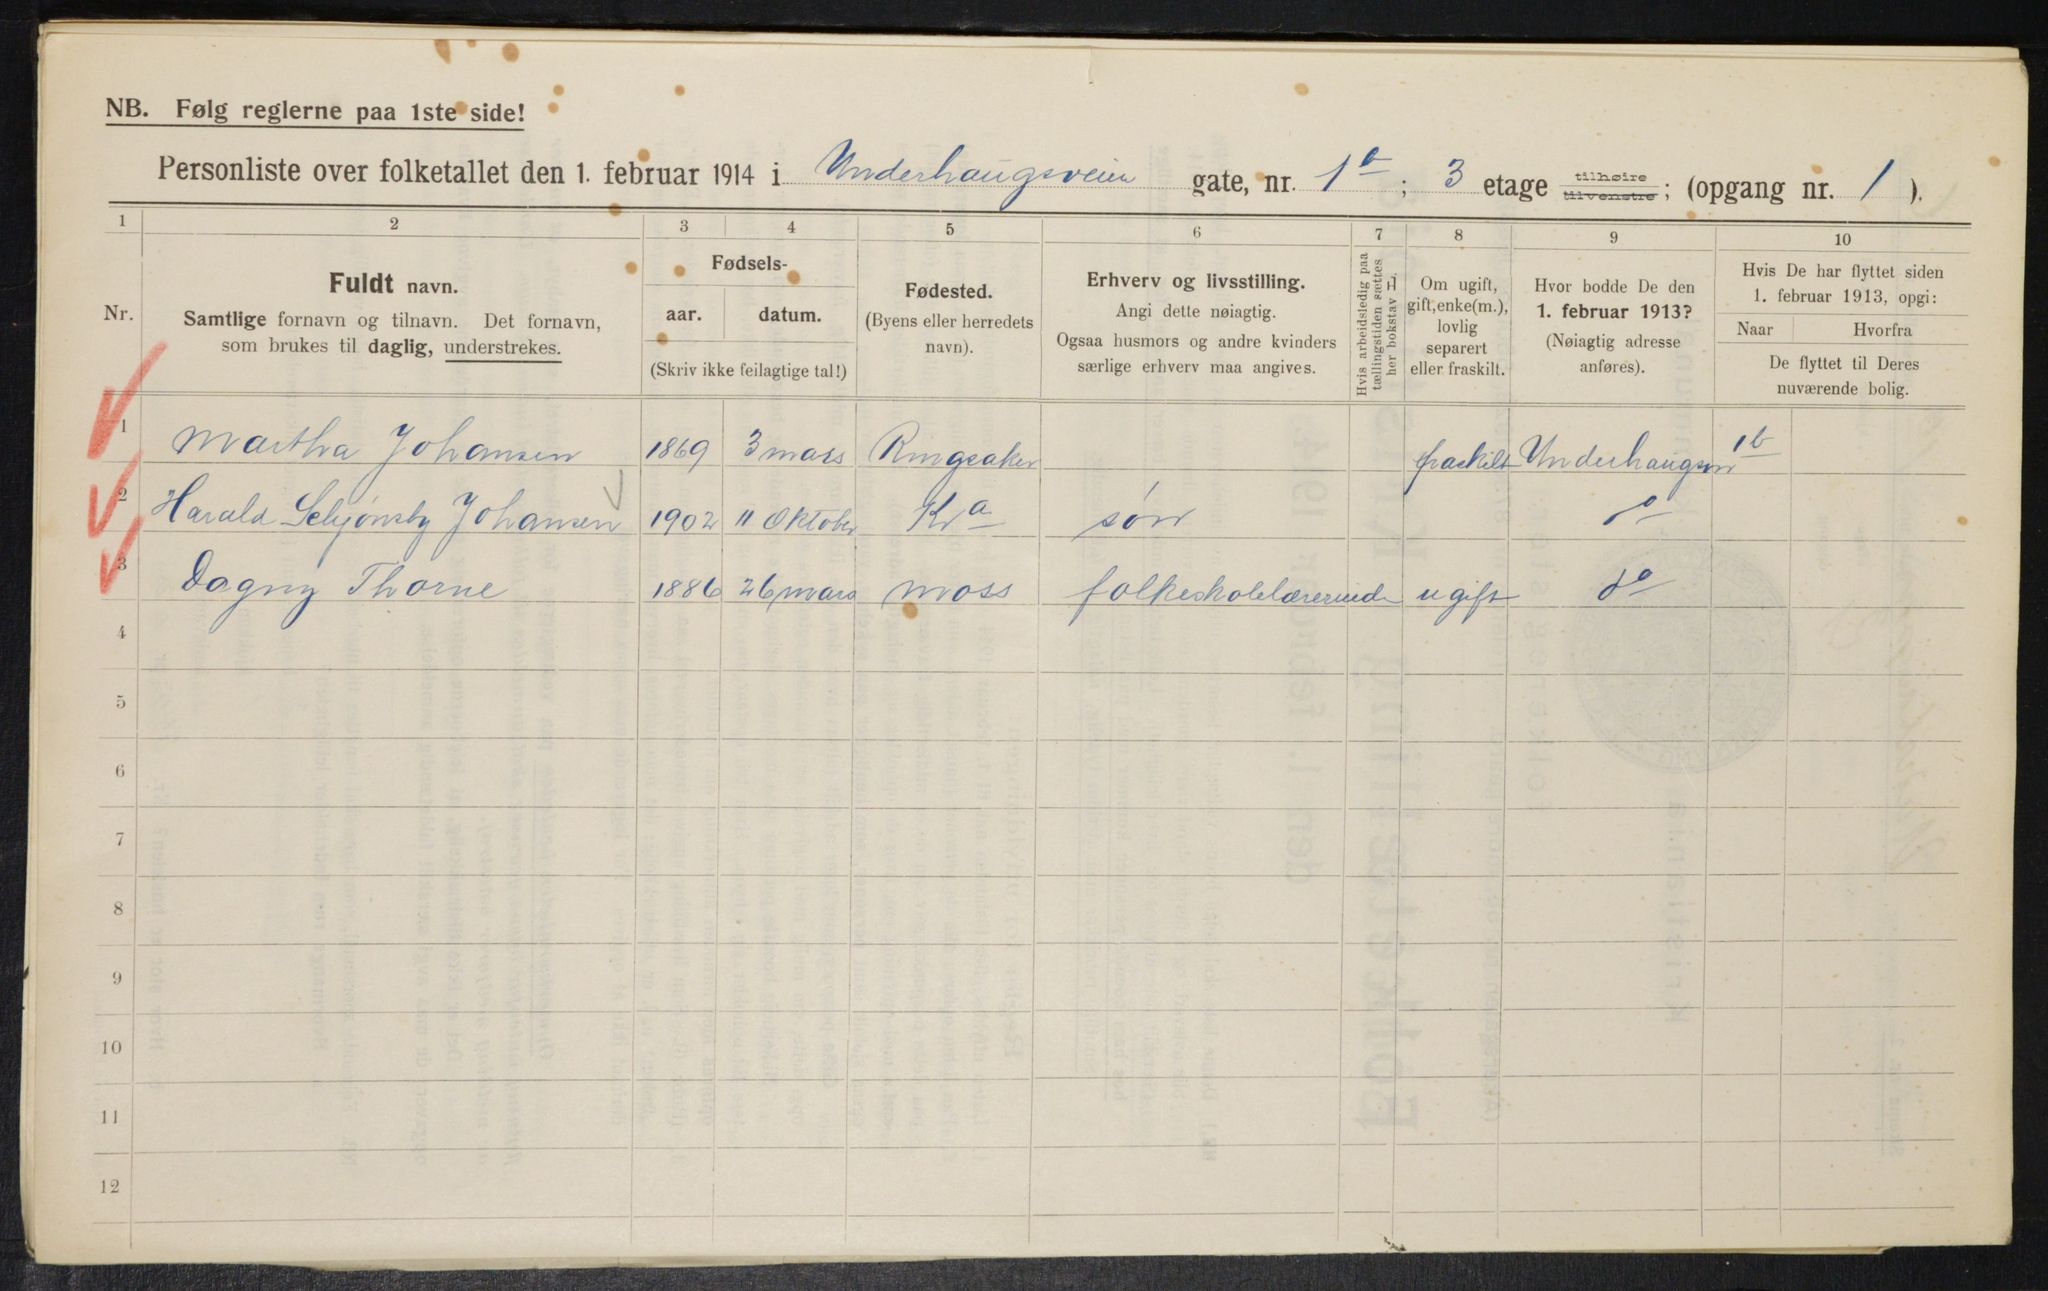 NB. Følg reglerne paa 1ste side!
Personliste over folketallet den 1. februar 1914 i Underhaugsveien gate, nr. 1a; 3 etage tilhøire tilvenstre; (opgang nr. 1).
1 2 3 4 5 6 7 8 9 10
Nr.
Fuldt navn.
Samtlige fornavn og tilnavn. Det fornavn,
som brukes til daglig, understrekes.
Fødsels-
aar. datum.
(Skriv ikke feilagtige tal!)
Fødested.
(Byens eller herredets
navn).
Erhverv og livsstilling.
Angi dette nøiagtig.
Ogsaa husmors og andre kvinders
særlige erhverv maa angives.
Hvis arbeidsledig paa
tællingstiden sættes
her bokstav L.
Om ugift,
gift, enke(m.),
lovlig
separert
eller fraskilt.
Hvor bodde De den
1. februar 1913?
(Nøiagtig adresse
anføres).
Hvis De har flyttet siden
1. februar 1913, opgi:
Naar Hvorfra
De flyttet til Deres
nuværende bolig.
1 Martha Johansen 1869 3 mars Ringsaker fraskilt Underhaugsvn 1b
2 Harald Johansen 1902 11 Oktober Kra søn do
3 Dagny Thorne 1886 26 mars Moss folkeskolelærerinde ugift do
4
5
6
7
8
9
10
11
12